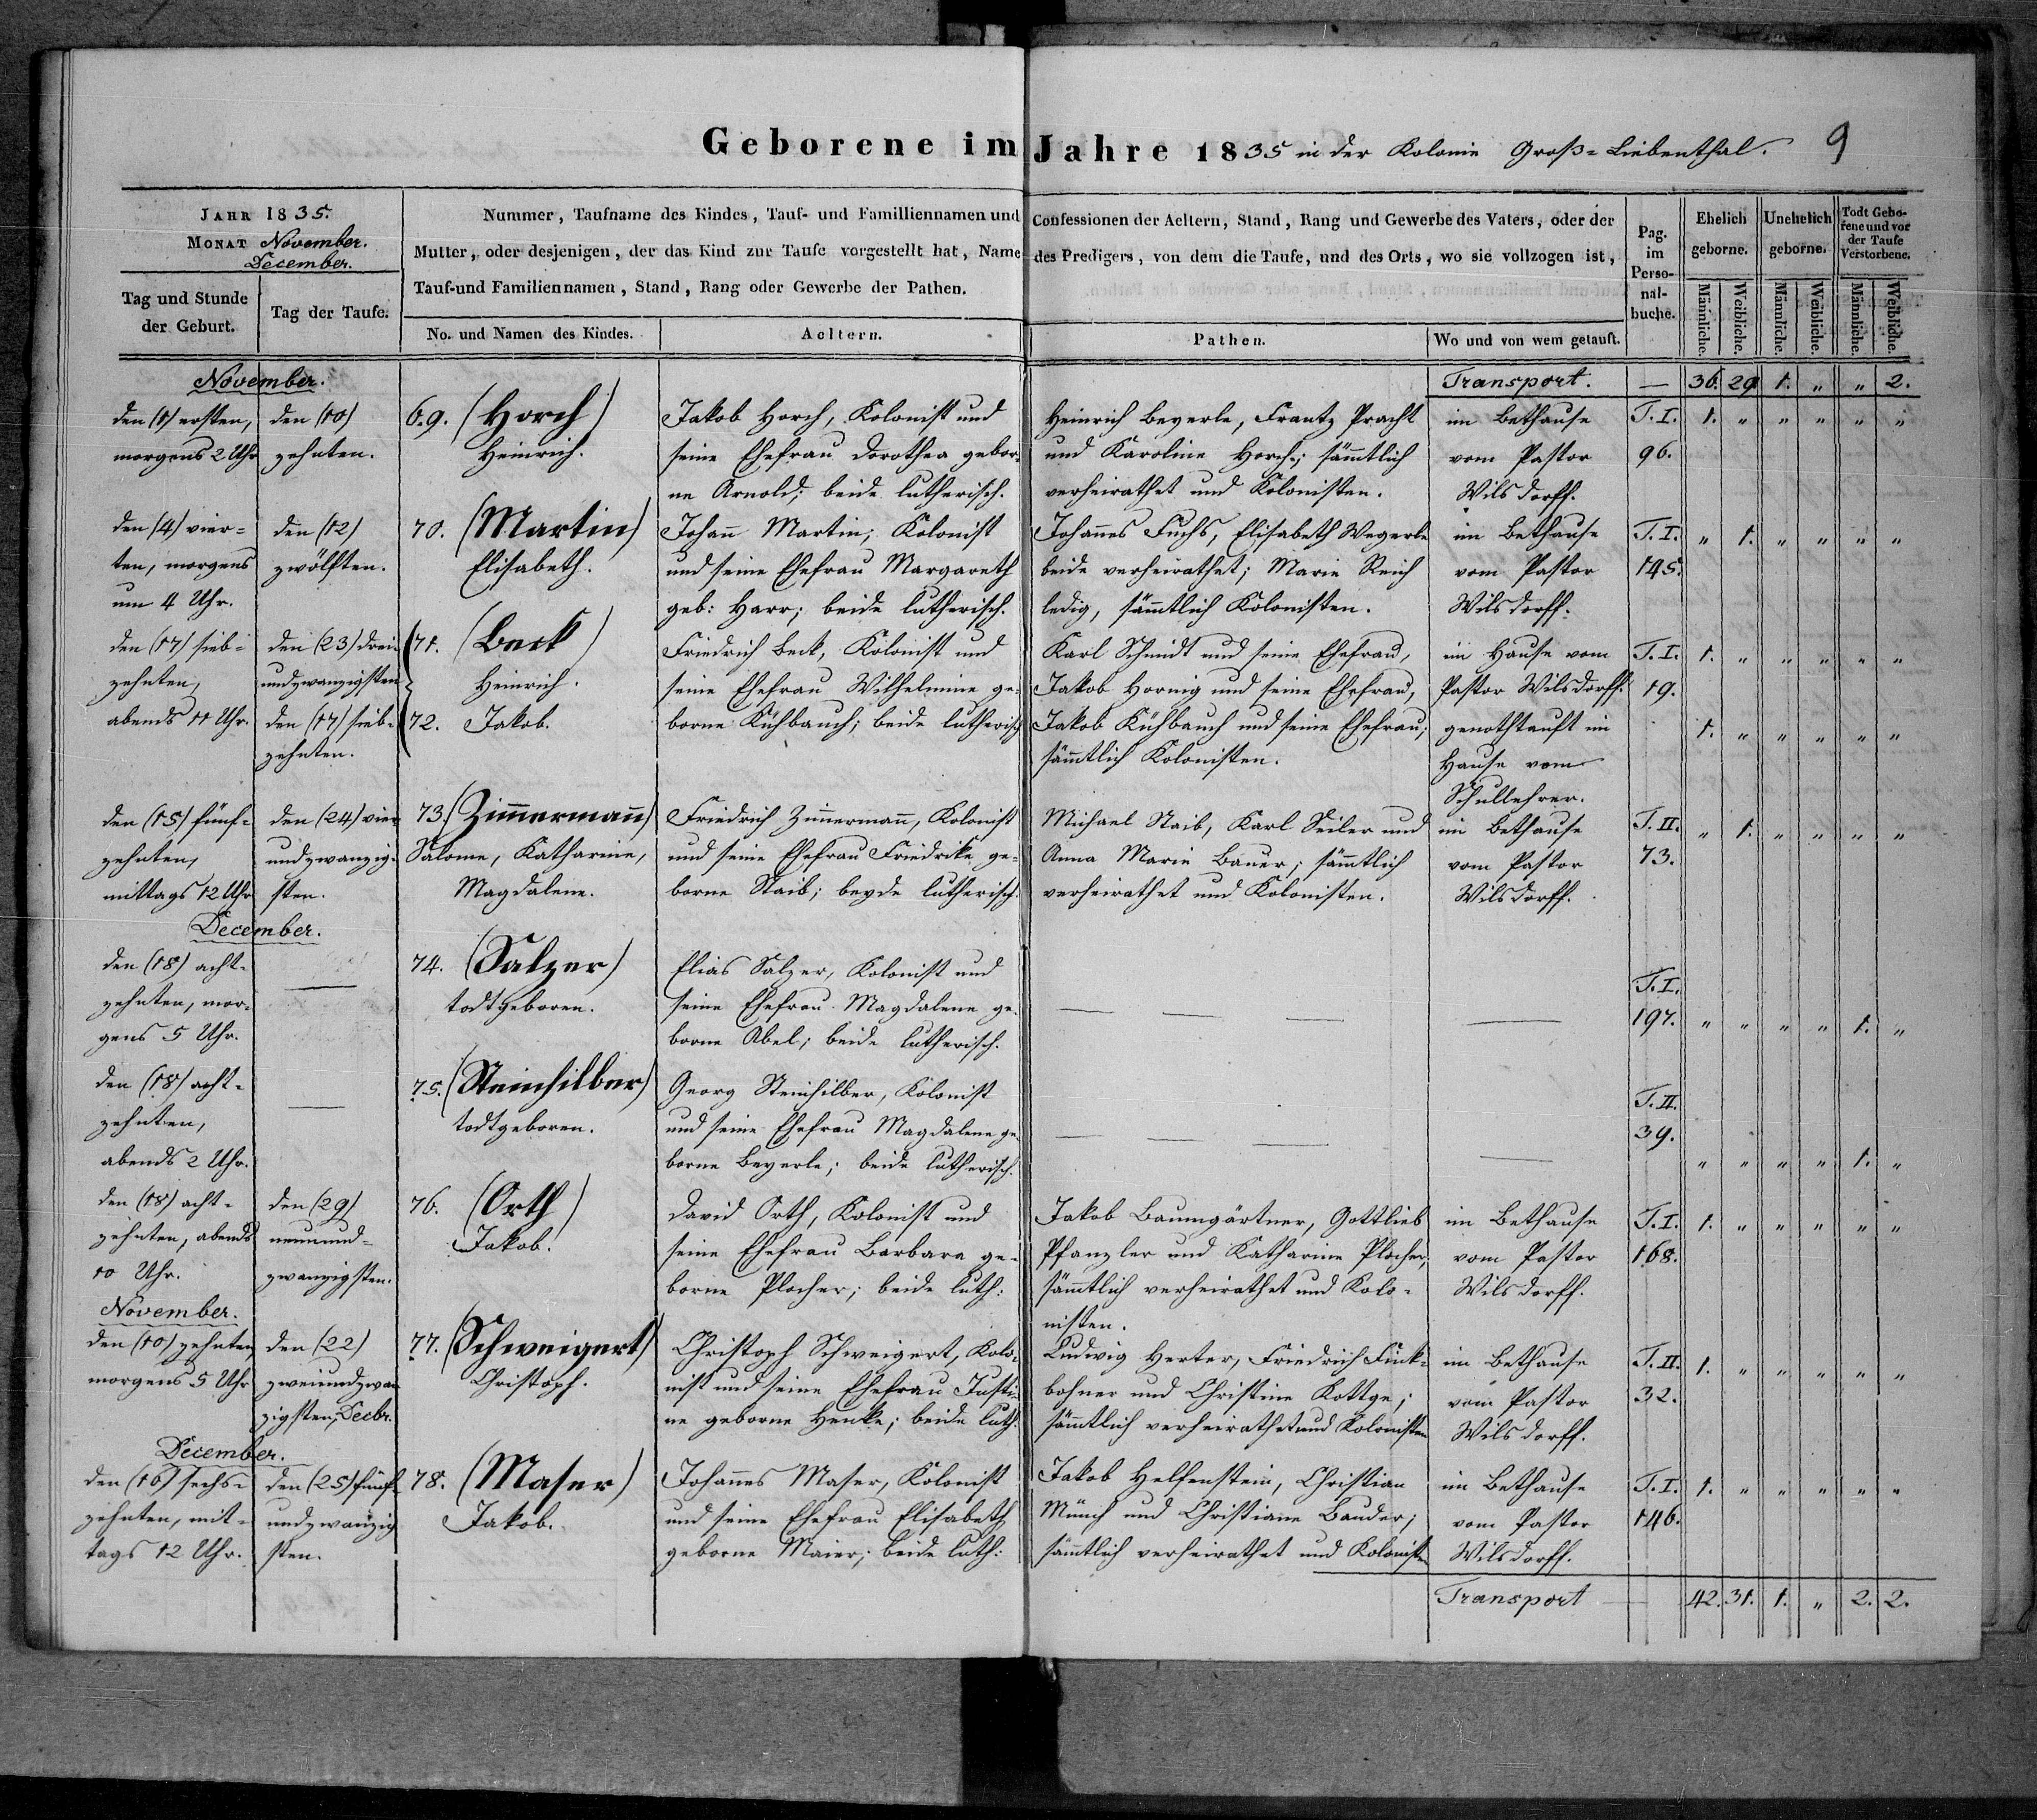 Geborene im Jahre 1835 in der Kolonie Groß-Liebenthal. 9
JAHR 1835.
MONAT November.
December.
Tag und Stunde
der Geburt.
Tag der Taufe.
Nummer, Taufname des Kindes, Tauf- und Familliennamen und
Mutter, oder desjenigen, der das Kind zur Taufe vorgestellt hat, Name
Tauf-und Familiennamen, Stand, Rang oder Gewerbe der Pathen.
No. und Namen des Kindes.
Aeltern.
Confessionen der Aeltern, Stand, Rang und Gewerbe des Vaters, oder der
des Predigers, von dem die Taufe, und des Orts, wo sie vollzogen ist,
Pathen.
Wo und von wem getauft.
Pag.
im
Perso-
nal-
buche.
Ehelich
geborne.
Unehelich
geborne.
Todt Gebo-
rene und vor
der Taufe
Verstorbene.
Männliche.
Weibliche.
Männliche.
Weibliche.
Männliche.
Weibliche.
November.
Transport. — 36. 29 1. " " 2.
den (1) ersten,
morgens 2 Uhr
den (10)
zehnten.
69. (Horch)
Heinrich.
Jakob Horch, Kolonist und
seine Ehefrau Dorothea gebor-
ne Arnold; beide lutherisch.
Heinrich Beyerle, Frantz Pracht
und Karoline Horch; sämmtlich
verheirathet und Kolonisten.
im Bethause
vom Pastor
Wilsdorff.
T. I.
96.
1. " " " " "
den (4) vier-
ten, morgens
um 4 Uhr.
den (12)
zwölften.
70. (Martin)
Elisabeth.
Johann Martin; Kolonist
und seine Ehefrau Margareth
geb: Harr; beide lutherisch.
Johannes Fuchs, Elisabeth Wegerle
beide verheirathet; Marie Reich
ledig, sämmtlich Kolonisten.
im Bethause
vom Pastor
Wilsdorff.
T. I.
145.
" 1. " " " "
den (17) sieb-
zehnten,
abends 11 Uhr.
den (23) drei-
undzwanzigsten
den (17) sieb-
zehnten.
71. (Beck)
Heinrich.
72. Jakob.
Friedrich Beck, Kolonist und
seine Ehefrau Wilhelmine ge-
borne Kühbauch; beide lutherisch
Karl Schmidt und seine Ehefrau,
Jakob Hornig und seine Ehefrau,
Jakob Kühbauch und seine Ehefrau;
sämmtlich Kolonisten.
im Hause vom
Pastor Wilsdorff.
genothtauft im
Hause vom
Schullehrer.
T. I.
19.
1. " " " " "
1. " " " " "
den (15) fünf-
zehnten,
mittags 12 Uhr
den (24) vier-
undzwanzig-
sten.
73. (Zimmermann)
Salome, Katharine,
Magdalene.
Friedrich Zimmermann, Kolonist
und seine Ehefrau Friedrike ge-
borne Staib; beyde lutherisch.
Michael Staib, Karl Seiler und
Anna Marie Bauer; sämmtlich
verheirathet und Kolonisten.
im Bethause
vom Pastor
Wilsdorff.
T. II.
73.
" 1. " " " "
December.
den (18) acht-
zehnten, mor-
gens 5 Uhr.
—
74. (Salzer)
todtgeboren.
Elias Salzer, Kolonist und
seine Ehefrau Magdalene ge-
borne Abel; beide lutherisch.
— — — —
T. I.
197.
" " " " 1. "
den (18) acht-
zehnten,
abends 2 Uhr.
—
75. (Steinhilber)
todtgeboren.
Georg Steinhilber, Kolonist
und seine Ehefrau Magdalene ge-
borne Beyerle; beide lutherisch.
— — — —
T. II.
39.
" " " " 1. "
den (18) acht-
zehnten, abends
10 Uhr.
den (29)
neunund-
zwanzigsten.
76. (Orth)
Jakob.
David Orth, Kolonist und
seine Ehefrau Barbara ge-
borne Plocher; beide luth:
Jakob Baumgärtner, Gottlieb
Pfanzler und Katharine Plocher,
sämmtlich verheirathet und Kolo-
nisten.
im Bethause
vom Pastor
Wilsdorff.
T. I.
168.
1. " " " " "
November.
den (10) zehnten,
morgens 5 Uhr
den (22)
zweiundzwan-
zigsten, Decbr.
77. (Schweigert)
Christoph.
Christoph Schweigert, Kolo-
nist und seine Ehefrau Justi-
ne geborne Henke; beide luth.
Ludwig Herter, Friedrich Fink-
bohner und Christine Kottge;
sämmtlich verheirathet und Kolonisten
im Bethause
vom Pastor
Wilsdorff.
T. II.
32.
1. " " " " "
December.
den (16) sechs-
zehnten, mit-
tags 12 Uhr.
den (25) fünf-
undzwanzig-
sten.
78. (Maser)
Jakob.
Johannes Maser, Kolonist
und seine Ehefrau Elisabeth
geborne Maier; beide luth:
Jakob Helfenstein, Christian
Münch und Christiane Bauder;
sämmtlich verheirathet und Kolonisten
im Bethause
vom Pastor
Wilsdorff.
T. I.
146.
1. " " " " "
Transport — 42. 31. 1. " 2. 2.